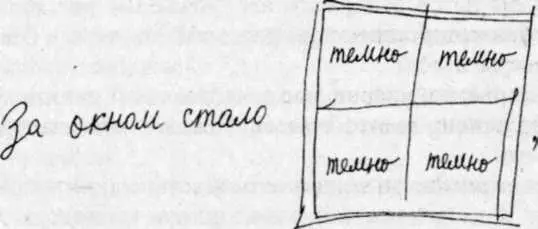 темно темно
За окном стало
темно темно,